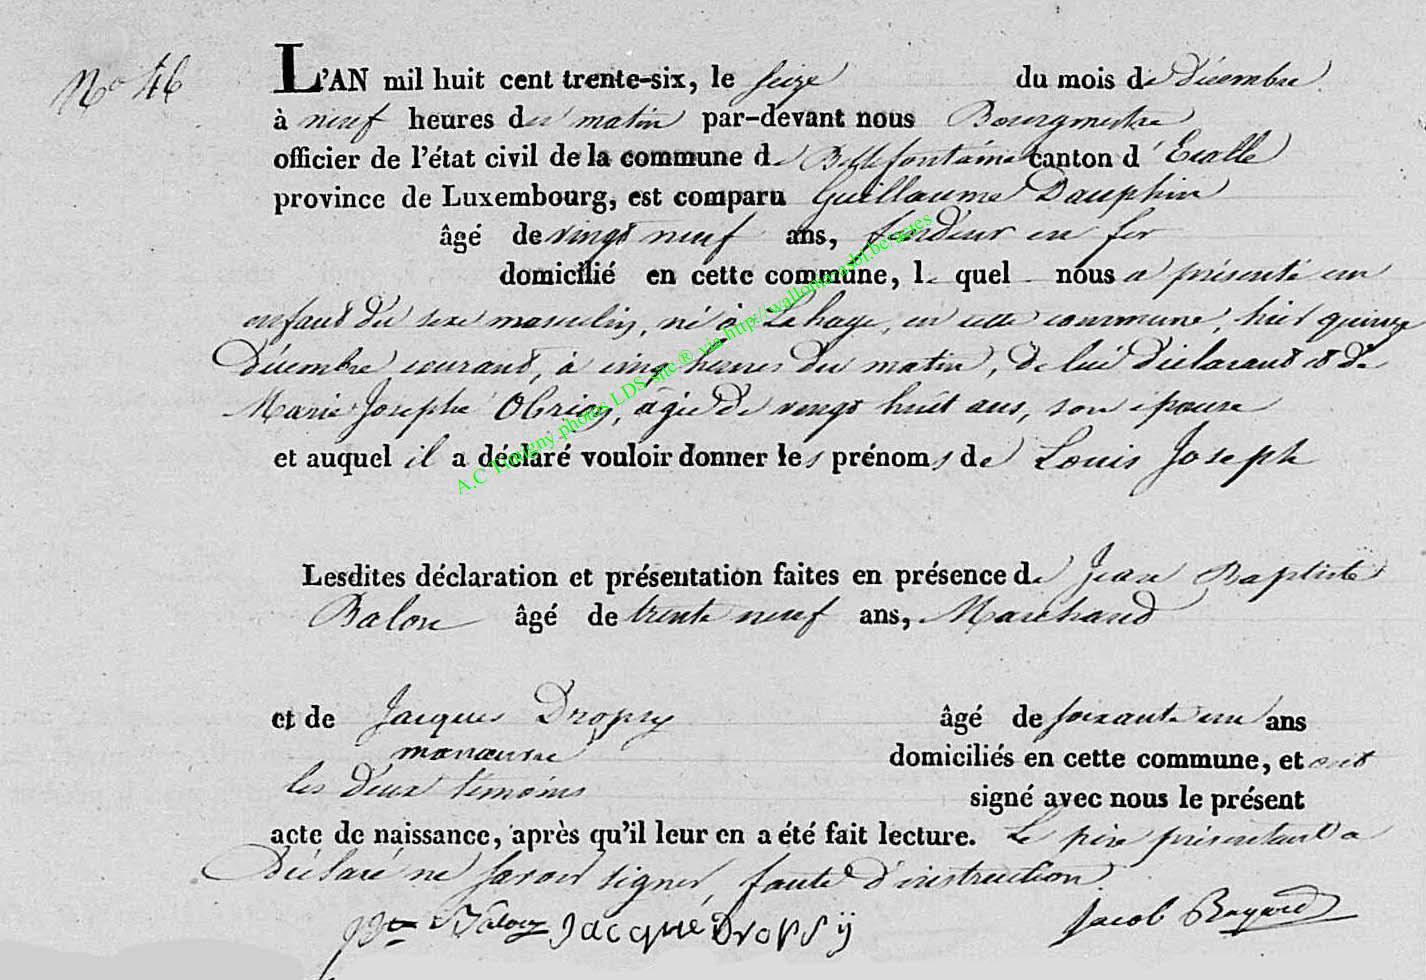 N° 46
L'AN mil huit cent trente-six, le seize du mois de décembre
à neuf heures du matin par-devant nous Bourgmestre
officier de l'état civil de la commune de Bellefontaine canton d'Etalle
province de Luxembourg, est comparu Guillaume Dauphin
âgé de vingt neuf ans, fondeur en fer
domicilié en cette commune, lequel nous a présenté un
enfant du sexe masculin, né à Lahage, en cette commune, hier quinze
décembre courant, à cinq heures du matin, de lui déclarant et de
Marie Josephe Obrien, agée de vingt huit ans, son épouse
et auquel il a déclaré vouloir donner les prénoms de Louis Joseph
Lesdites déclaration et présentation faites en présence de Jean Baptiste
Balon âgé de trente neuf ans, Marchand
et de Jacques Dropsy âgé de soixante un ans
manœuvre domiciliés en cette commune, et ont
les deux témoins signé avec nous le présent
acte de naissance, après qu'il leur en a été fait lecture. Le père présentant a
déclaré ne savoir signer, faute d'instruction
Bte Balon Jacque Dropsÿ Jacob Bayard
A.C Tintigny photos LDS site ® via http://wallonia-asbl.be/actes